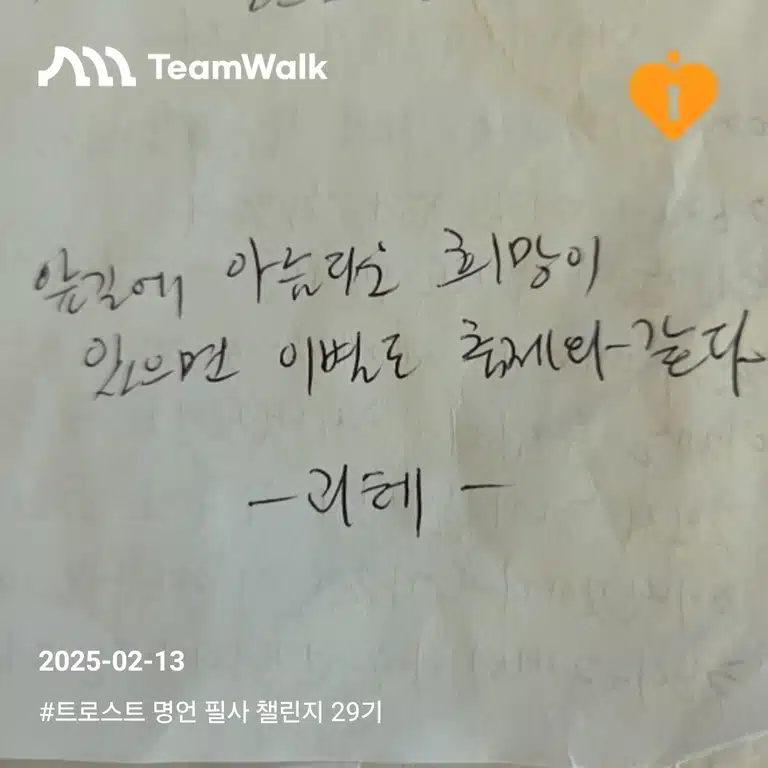 TeamWalk
앞길에 아름다운 희망이
있으면 이별도 축제와 같다.
- 괴테 -
2025-02-13
#트로스트 명언 필사 챌린지 29기